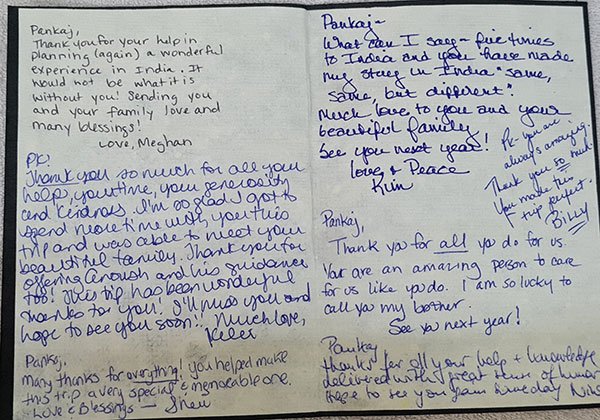 Pankaj,
Thank you for your help in
planning (again) a wonderful
experience in India. It
would not be what it is
without you! Sending you
and your family love and
many blessings!
Love, Meghan
PK!
Thank you so much for all your
help, your time, your generosity
and kindness. I'm so glad I got to
spend more time with you this
trip and was able to meet your
beautiful family. Thank you for
offering and his guidance
too! This trip has been wonderful
thanks for you! I'll miss you and
hope to see you soon!! Much love,
Kelei
Pankaj,
Many thanks for everything! you helped make
this trip a very special & memorable one.
Love & Blessings —
Pankaj—
What can I say - five times
to India and you have made
my stay in India "same,
same, but different".
Much love to you and your
beautiful family
See you next year!
Love & Peace
Kim
PK- you are
always amazing.
Thank you so much.
You made this
trip perfect.
Billy
Pankaj,
Thank you for all you do for us.
You are an amazing person to care
for us like you do. I am so lucky to
call you my brother.
See you next year!
Pankaj
thanks for all your help + knowledge
delivered with great sense of humor
Hope to see you again someday